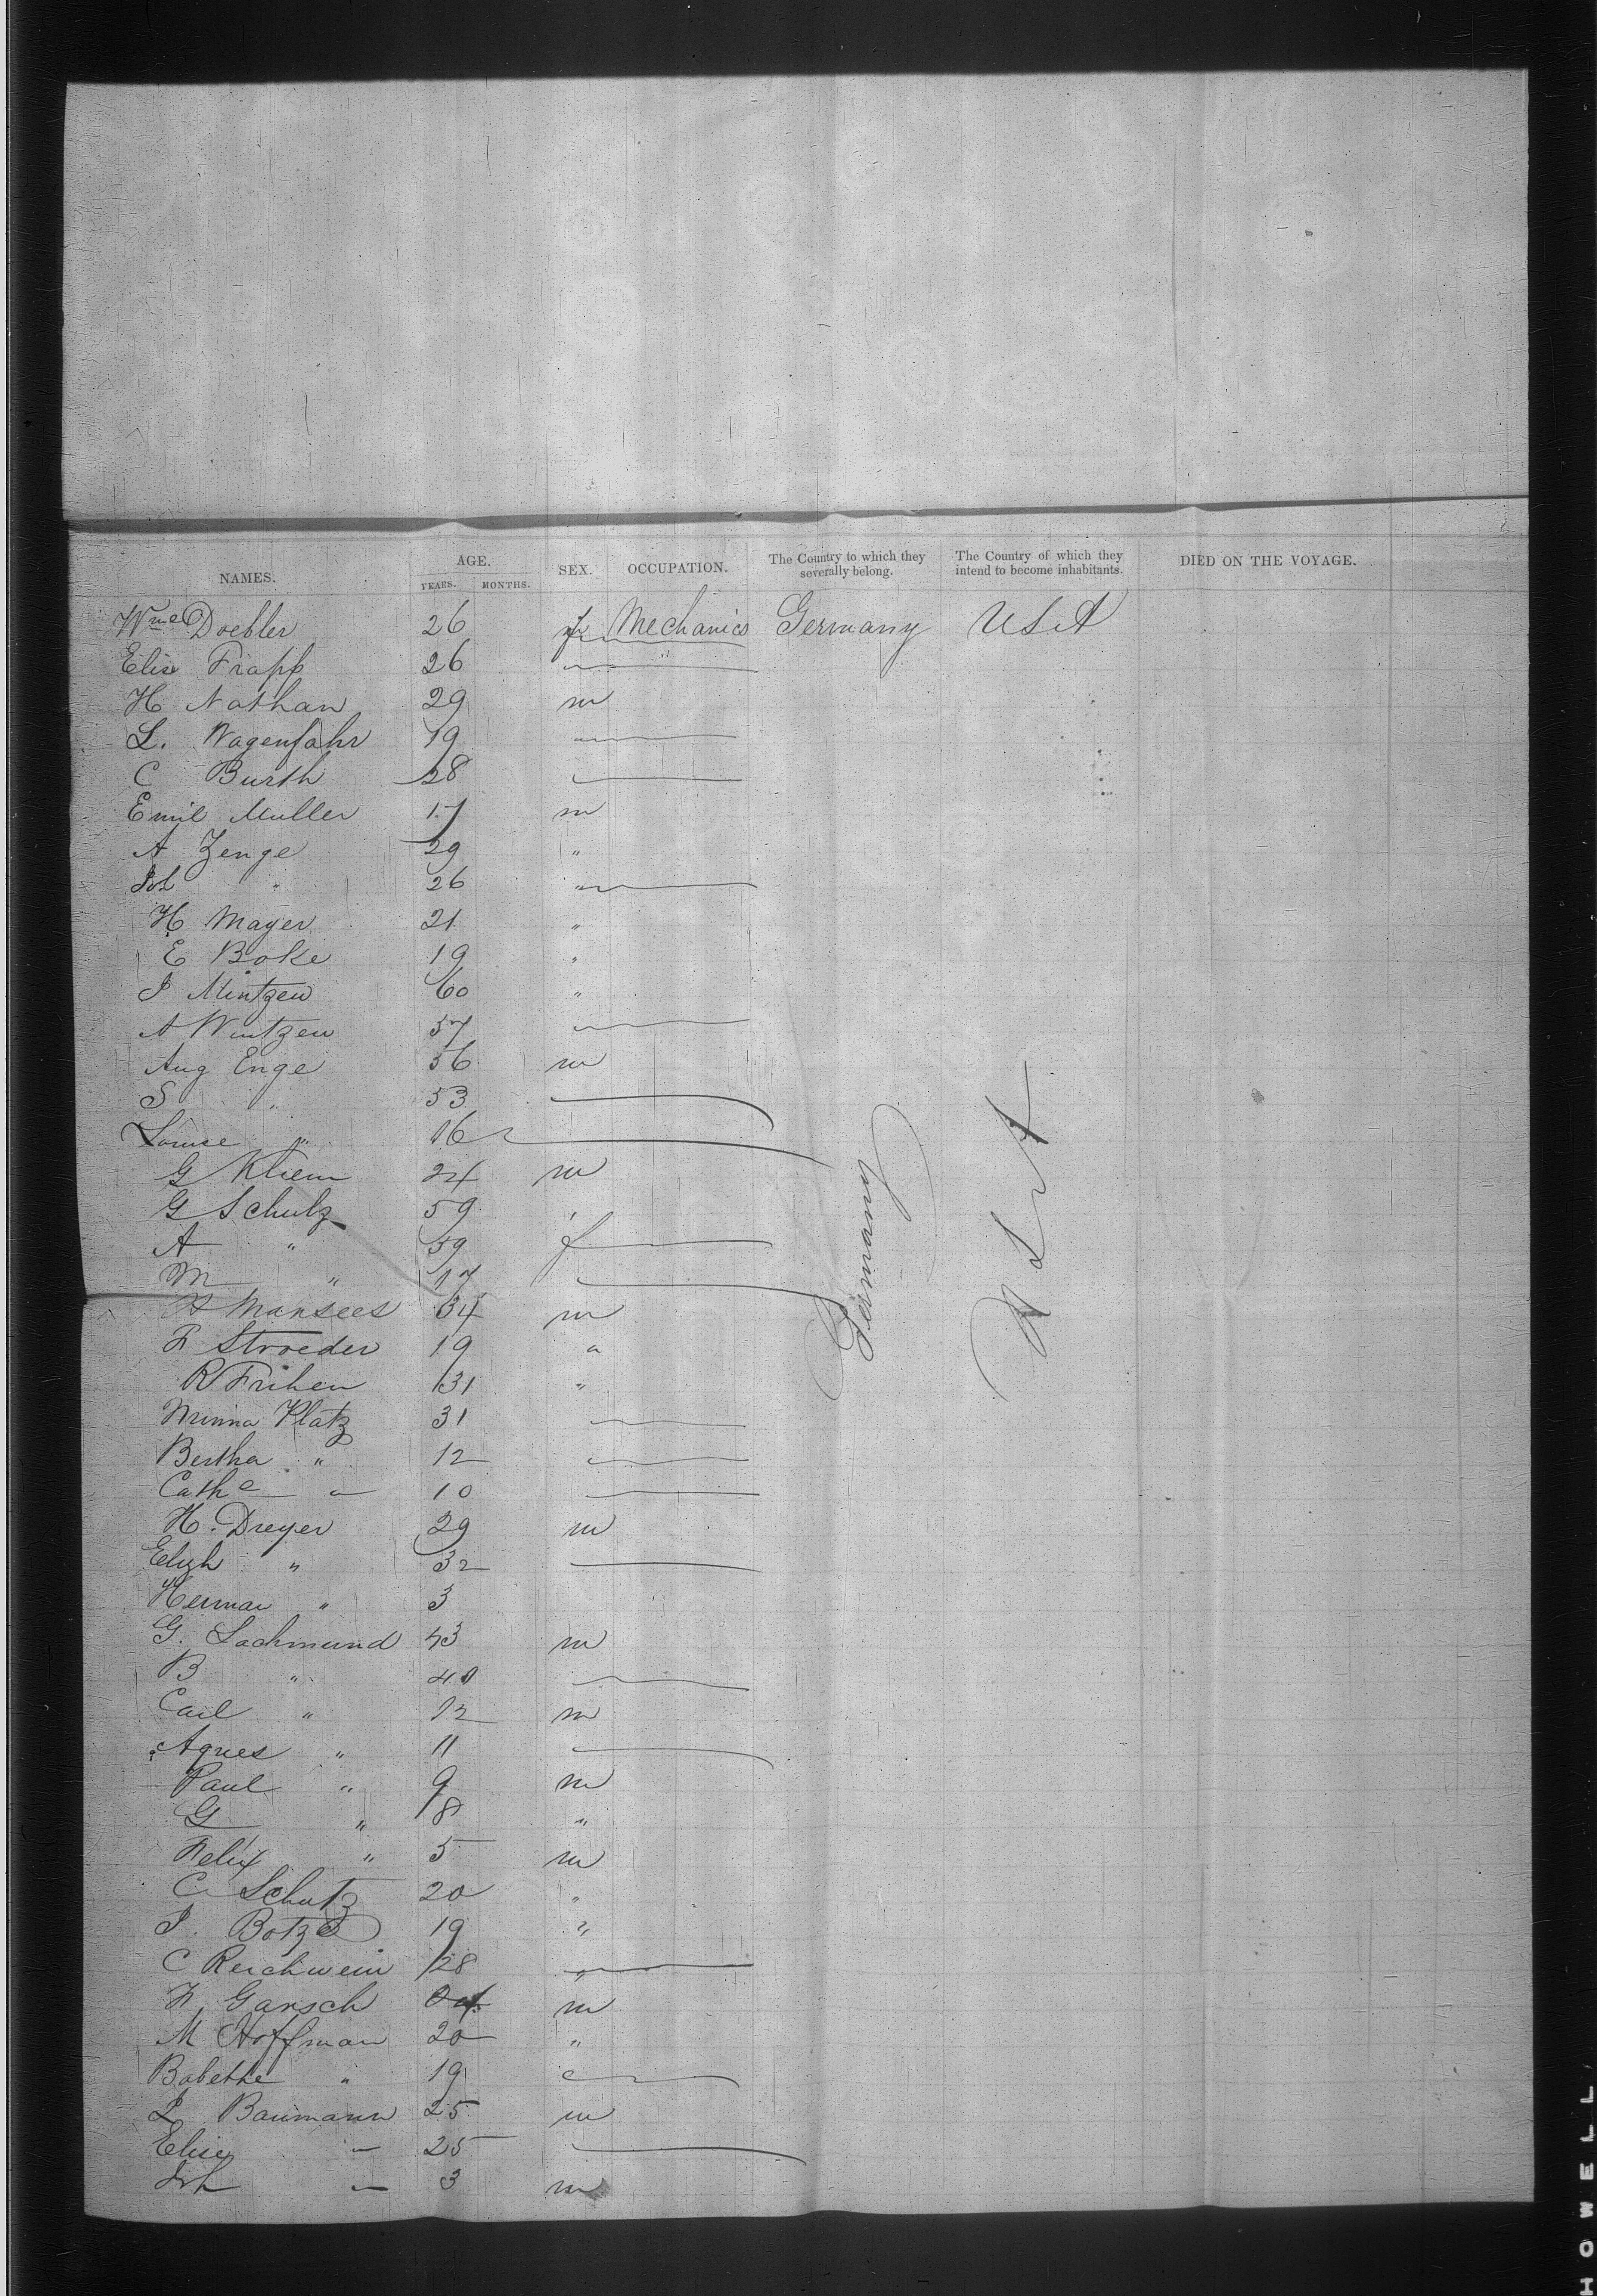 NAMES. AGE. SEX. OCCUPATION. The Country to which they severally belong. The Country of which they intend to become inhabitants. DIED ON THE VOYAGE.
YEARS. MONTHS.
Wme Doebler 26 Mechanics Germany USA
Elise Trapp 26 "
H Nathan 29 m
L. Wagenfahr 19
C Burth 28
Emil Muller 17 m
A Zenge 29 "
" 26 "
H Mayer 21 "
E Boke 19 "
J Mintzen 60 "
A Wintzen 57
Aug Enge 56 m
S " 53
Louise " 16
G Kliem 24 m
G Schulz 59 '
A " 59 f
M " 17
H Mansees 34 m
F Stroeder 19 "
R Frihen 31 "
Minna Platz 31
Bertha " 12
Cathe " 10
H. Dreyer 29 m
Elizh " 32
Herman " 3
G. Lachmund 43 m
B " 40
Carl " 12 m
Agnes " 11
Paul " 9 m
G " 8 "
Felix " 5 m
C Schutz 20 "
J. Botze 19 "
C Reichwein 28 "
F. Gansch m
M Hoffman 20 "
Babethe " 19
L Baumann 25 m
Elise " 25
Joh " 3 m
Germany
USA
HOWELL